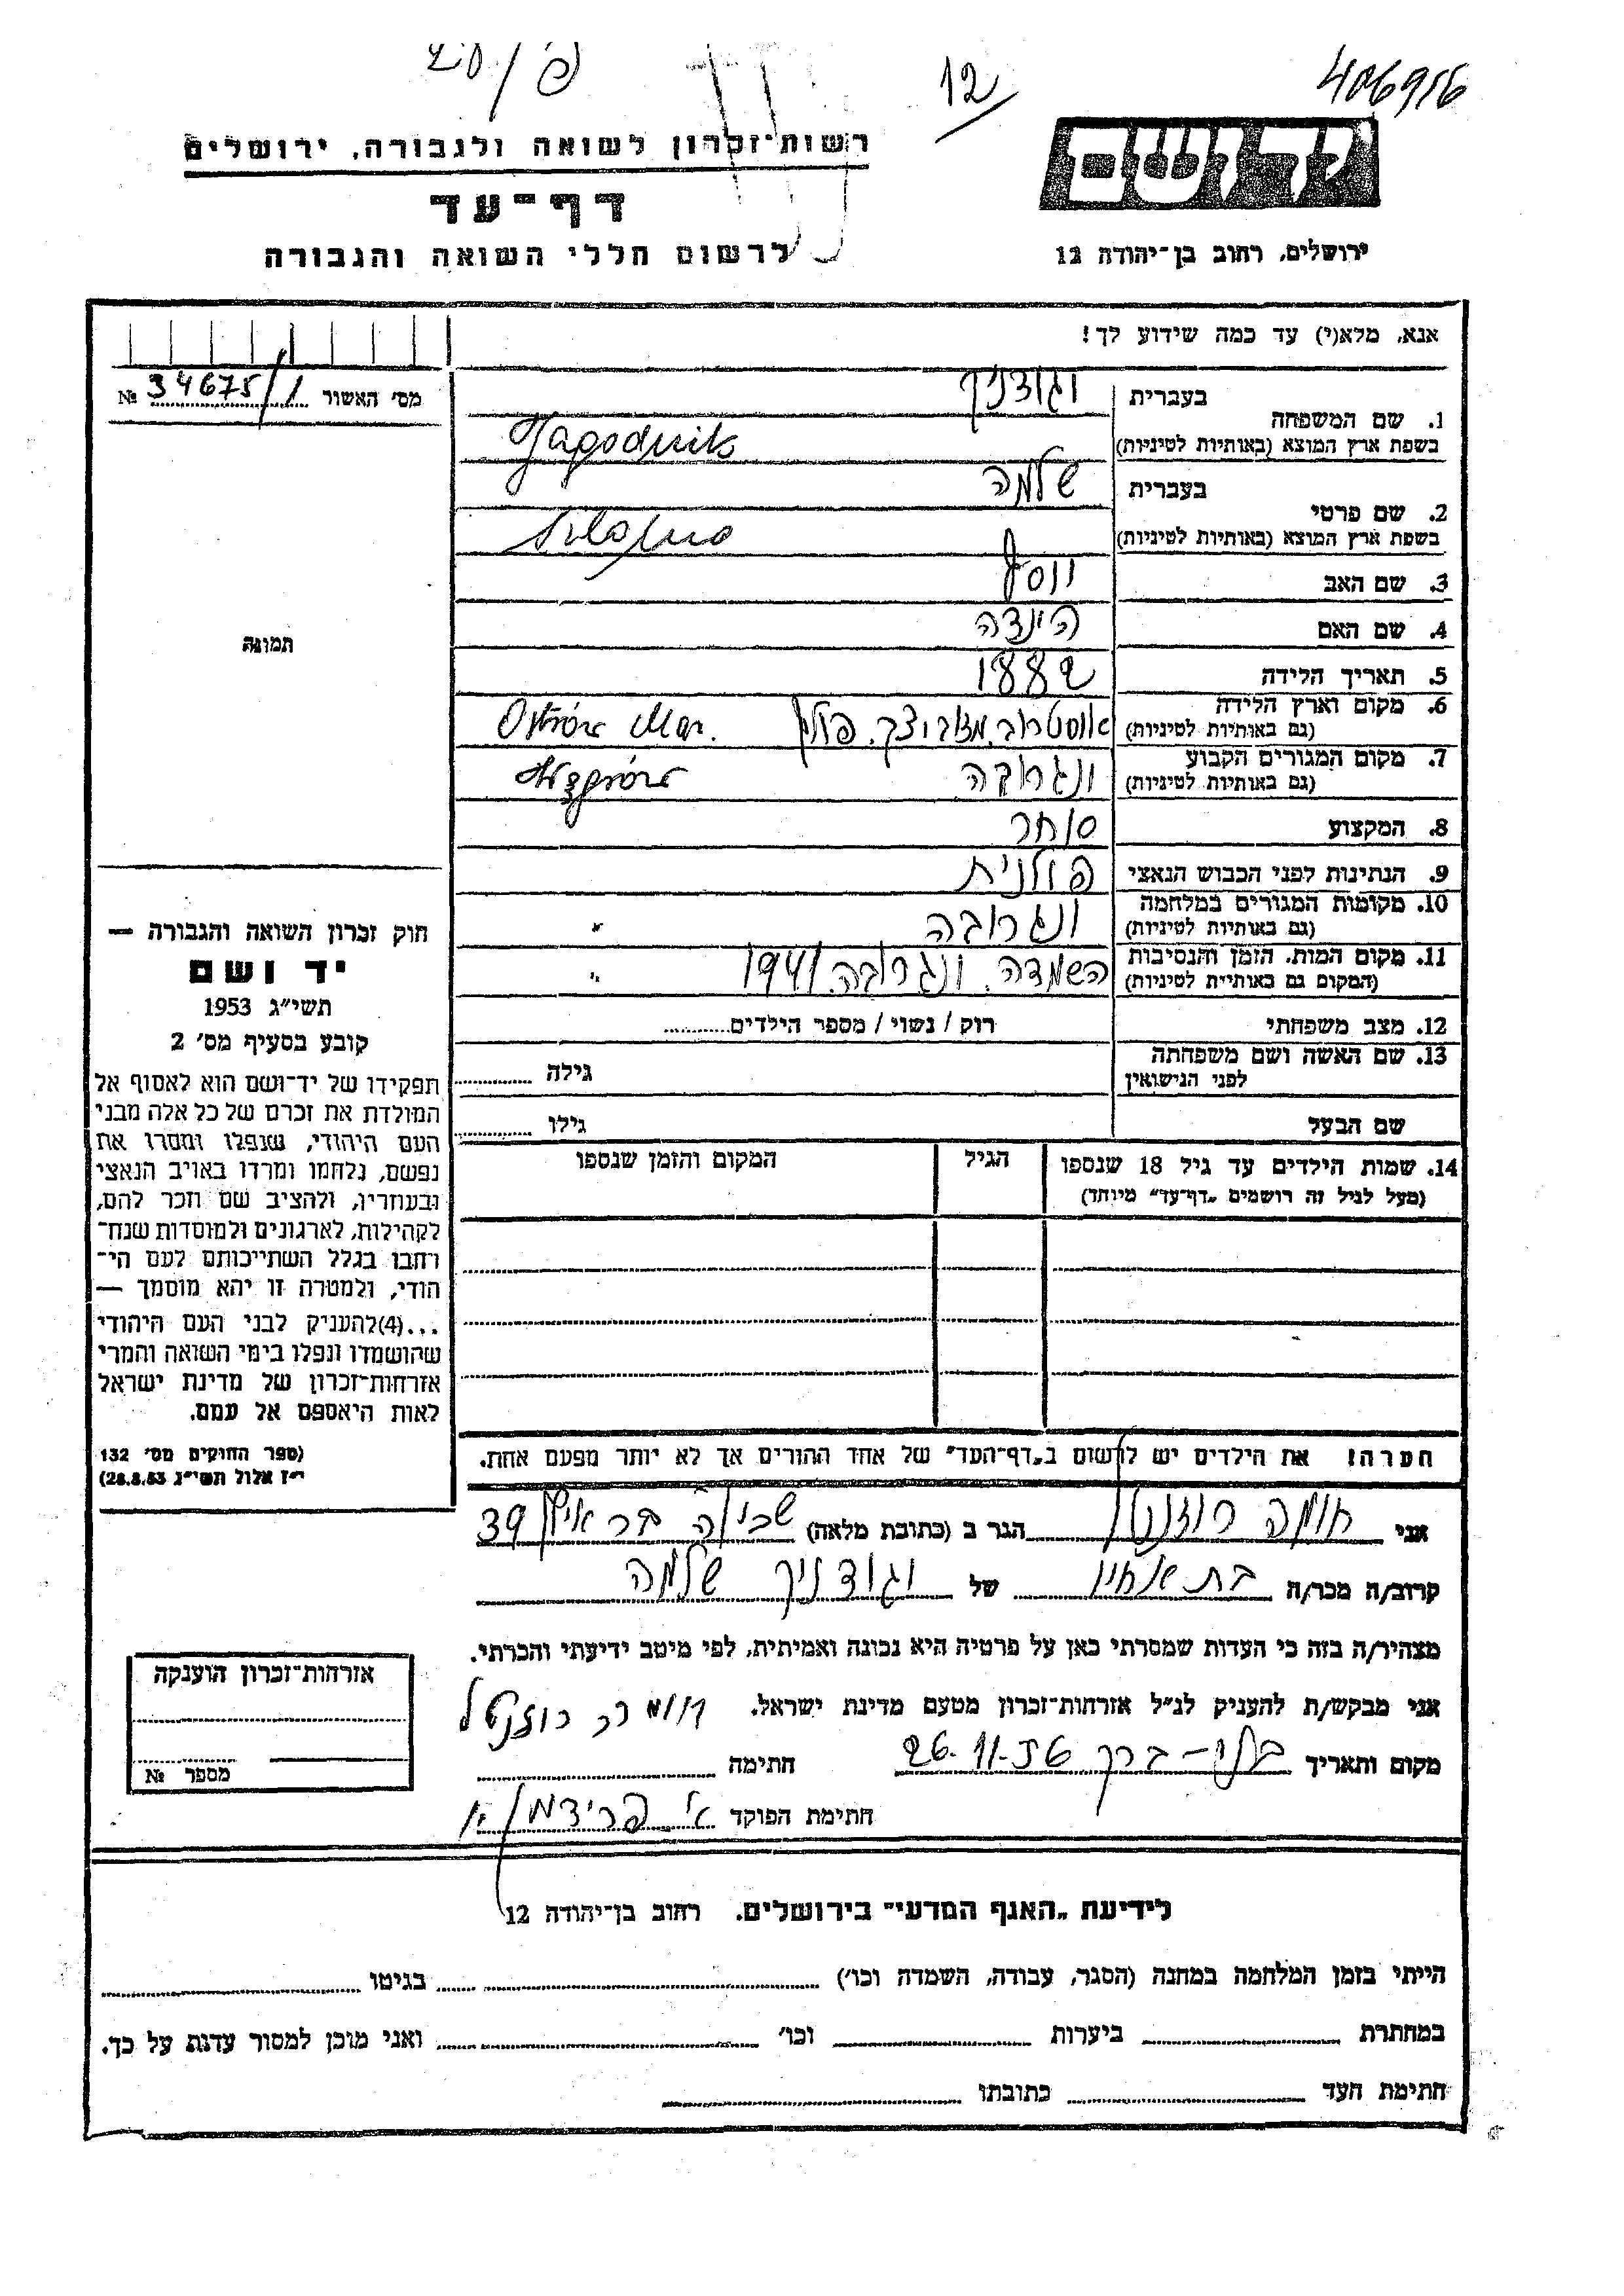 406916
12
ידושם
ירושלים, רחוב בן־יהודה 12
רשות־זכרון לשואה ולגבורה, ירושלים
דף־עד
לרשום חללי השואה והגבורה
אנא, מלא(י) עד כמה שידוע לך!
מס׳ האשור 34675/1 №
תמונה
1. שם המשפחה
בעברית יגודניק
בשפת ארץ המוצא (באותיות לטיניות) Jagodnik
2. שם פרטי
בעברית שלמה
בשפת ארץ המוצא (באותיות לטיניות)
3. שם האב יוסף
4. שם האם הינדה
5. תאריך הלידה 1882
6. מקום וארץ הלידה
(גם באותיות לטיניות) אוסטרוב. מזוביצק. פולין Ostrów Maz.
7. מקום המגורים הקבוע
(גם באותיות לטיניות) ונגרובה Węgrów
8. המקצוע סוחר
9. הנתינות לפני הכבוש הנאצי פולנית
10. מקומות המגורים במלחמה
(גם באותיות לטיניות) ונגרובה "
11. מקום המות, הזמן והנסיבות
(המקום גם באותיות לטיניות) השמדה. ונגרובה. 1941 "
12. מצב משפחתי רוק / נשוי / מספר הילדים
13. שם האשה ושם משפחתה
לפני הנישואין גילה
שם הבעל גילו
14. שמות הילדים עד גיל 18 שנספו
(מעל לגיל זה רושמים „דף־עד״ מיוחד)
הגיל
המקום והזמן שנספו
חוק זכרון השואה והגבורה —
יד ושם
תשי״ג 1953
קובע בסעיף מס׳ 2
תפקידו של יד־ושם הוא לאסוף אל
המולדת את זכרם של כל אלה מבני
העם היהודי, שנפלו ומסרו את
נפשם, נלחמו ומרדו באויב הנאצי
ובעוזריו, ולהציב שם וזכר להם,
לקהילות, לארגונים ולמוסדות שנח־
רחבו בגלל השתייכותם לעם הי־
הודי, ולמטרה זו יהא מוסמך —
...(4)להעניק לבני העם היהודי
שהושמדו ונפלו בימי השואה והמרי
אזרחות־זכרון של מדינת ישראל
לאות היאספם אל עמם.
(ספר החוקים מס׳ 132
י״ז אלול תשי״ג 28.8.53)
הערה! את הילדים יש לרשום ב„דף־העד״ של אחד ההורים אך לא יותר מפעם אחת.
אני רוזנטל הגר ב (כתובת מלאה) 39
קרוב/ה מכר/ה בת אחיו של יגודניק שלמה
מצהיר/ה בזה כי העדות שמסרתי כאן על פרטיה היא נכונה ואמיתית, לפי מיטב ידיעתי והכרתי.
אני מבקש/ת להעניק לנ״ל אזרחות־זכרון מטעם מדינת ישראל. רוזנטל
מקום ותאריך בני-ברק 26.11.56 חתימה
חתימת הפוקד א. פרידמן
אזרחות־זכרון הוענקה
מספר №
לידיעת „האגף המדעי״ בירושלים. רחוב בן־יהודה 12
הייתי בזמן המלחמה במחנה (הסגר, עבודה, השמדה וכו׳) בגיטו
במחתרת ביערות וכו׳ ואני מוכן למסור עדות על כך.
חתימת העד כתובתו